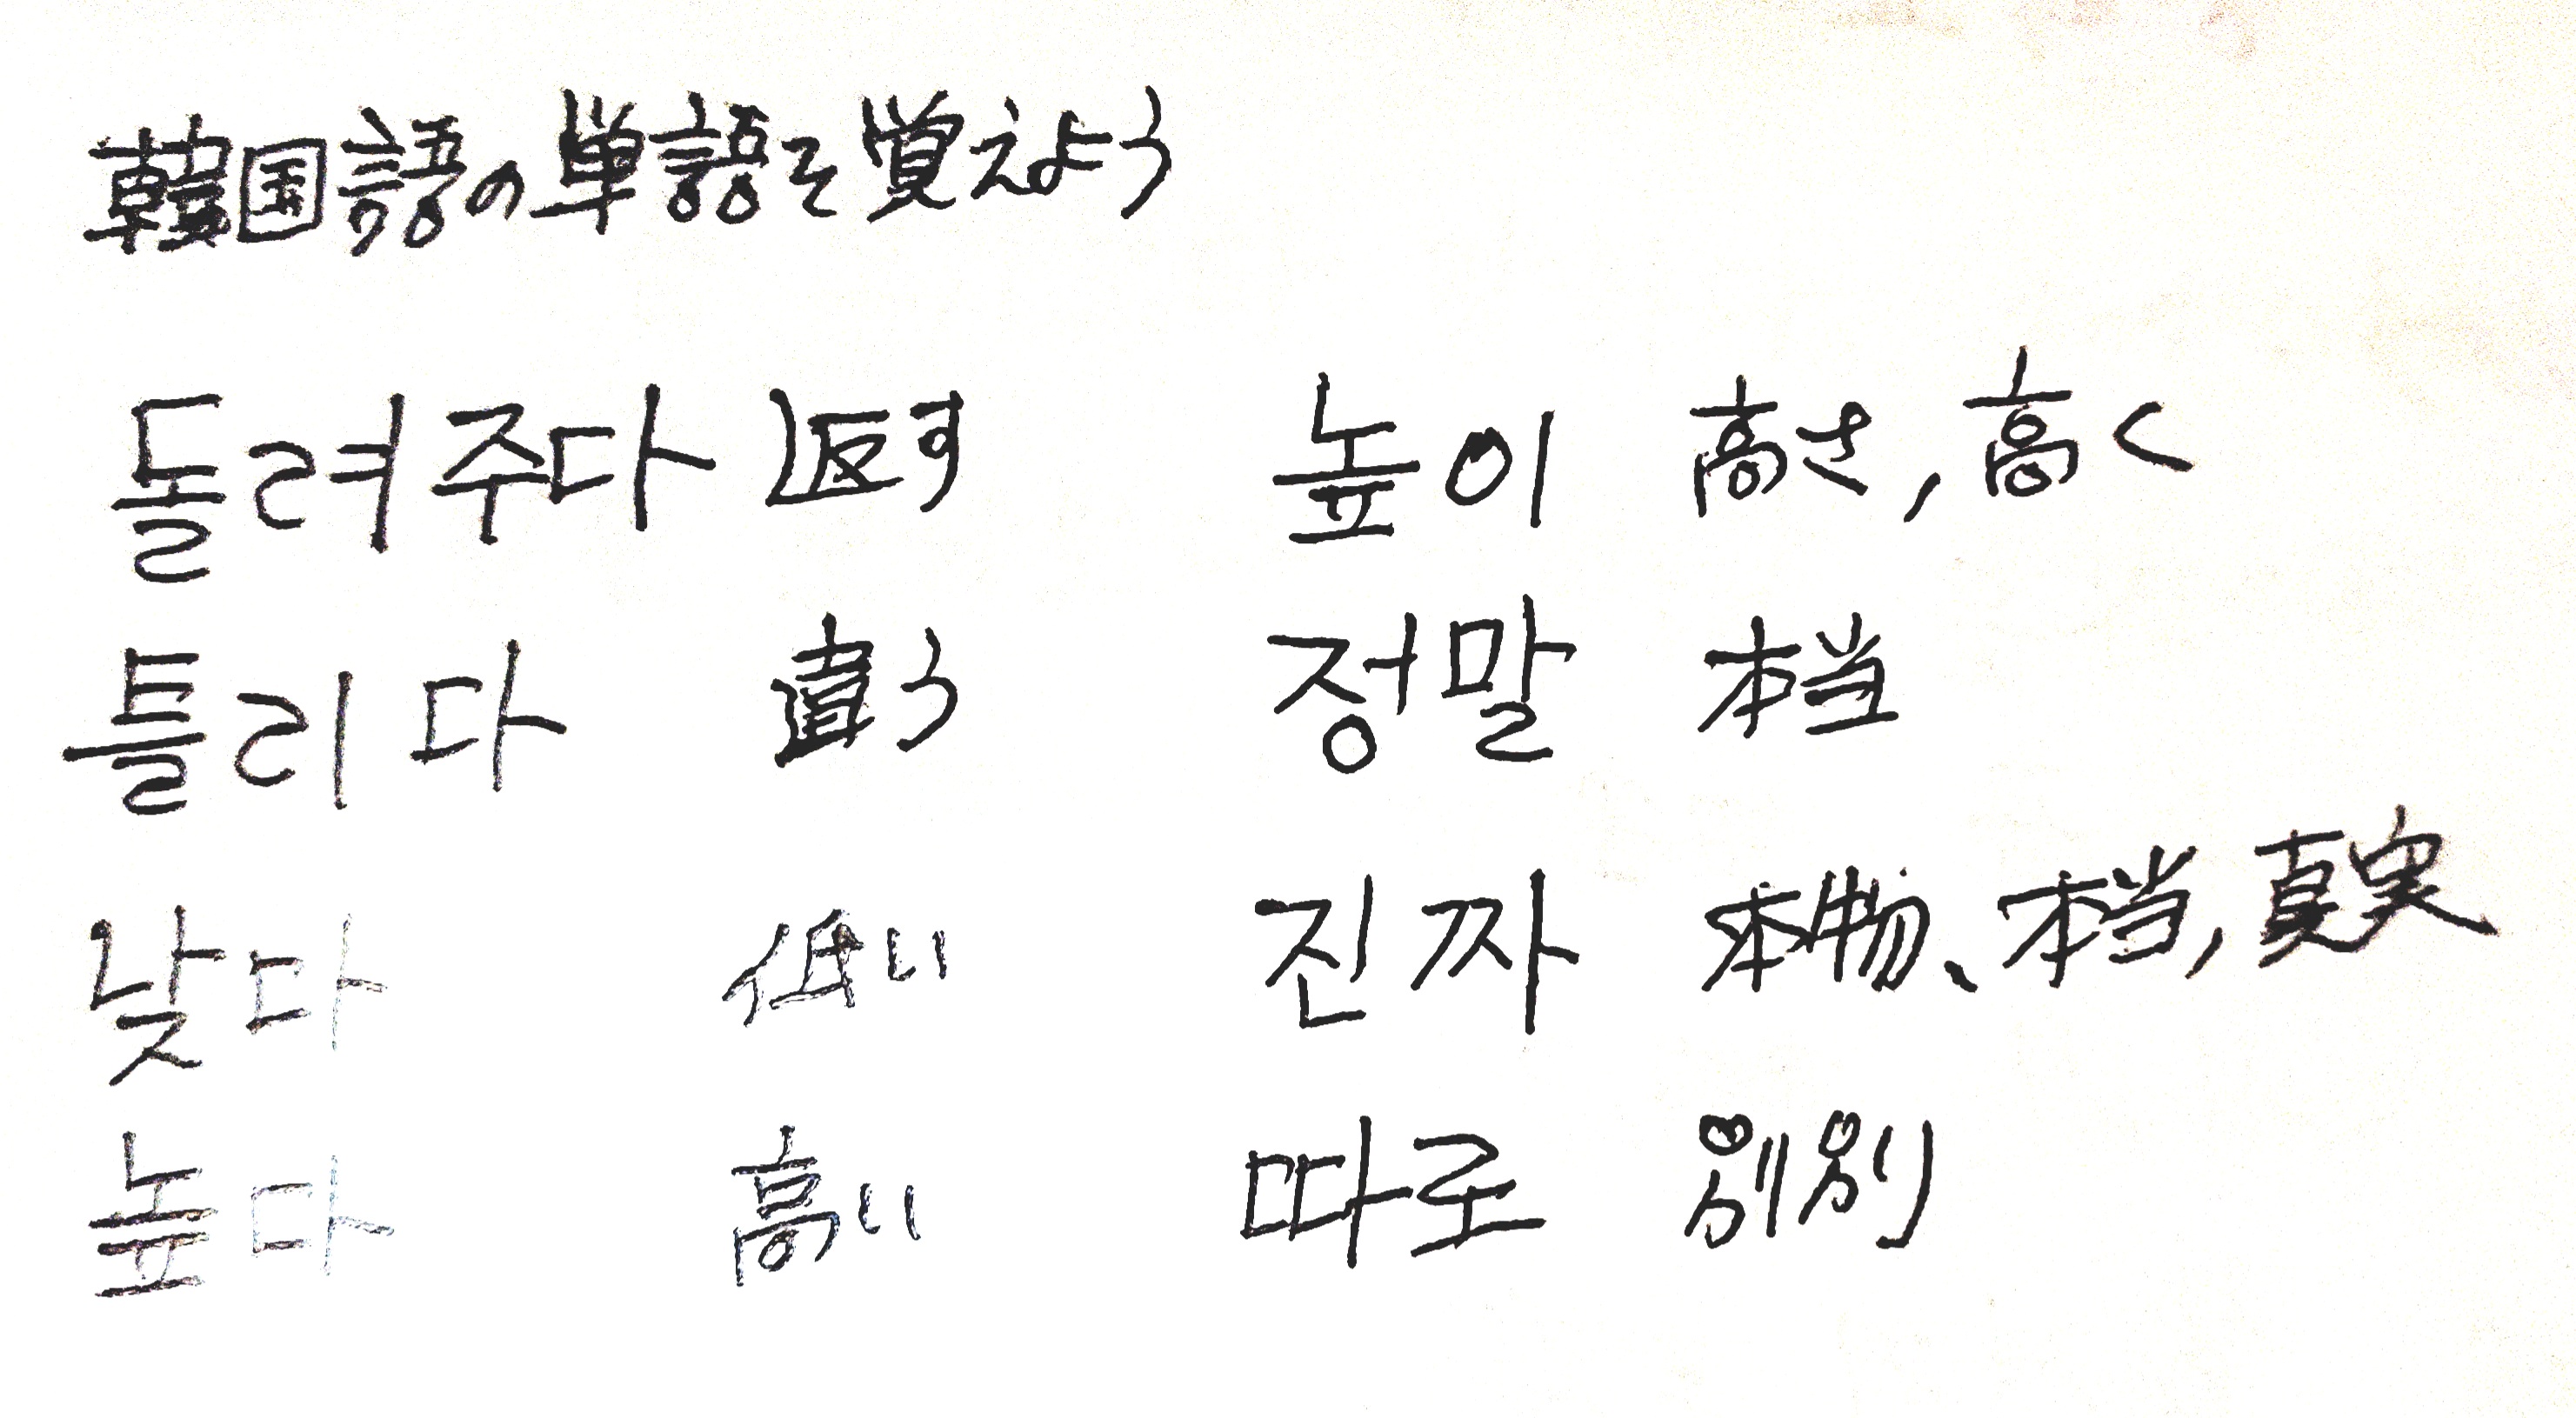 韓国語の単語を覚えよう
돌려주다 返す
틀리다 違う
낮다 低い
높다 高い
높이 高さ,高く
정말 本当
진짜 本物、本当,真実
따로 別別